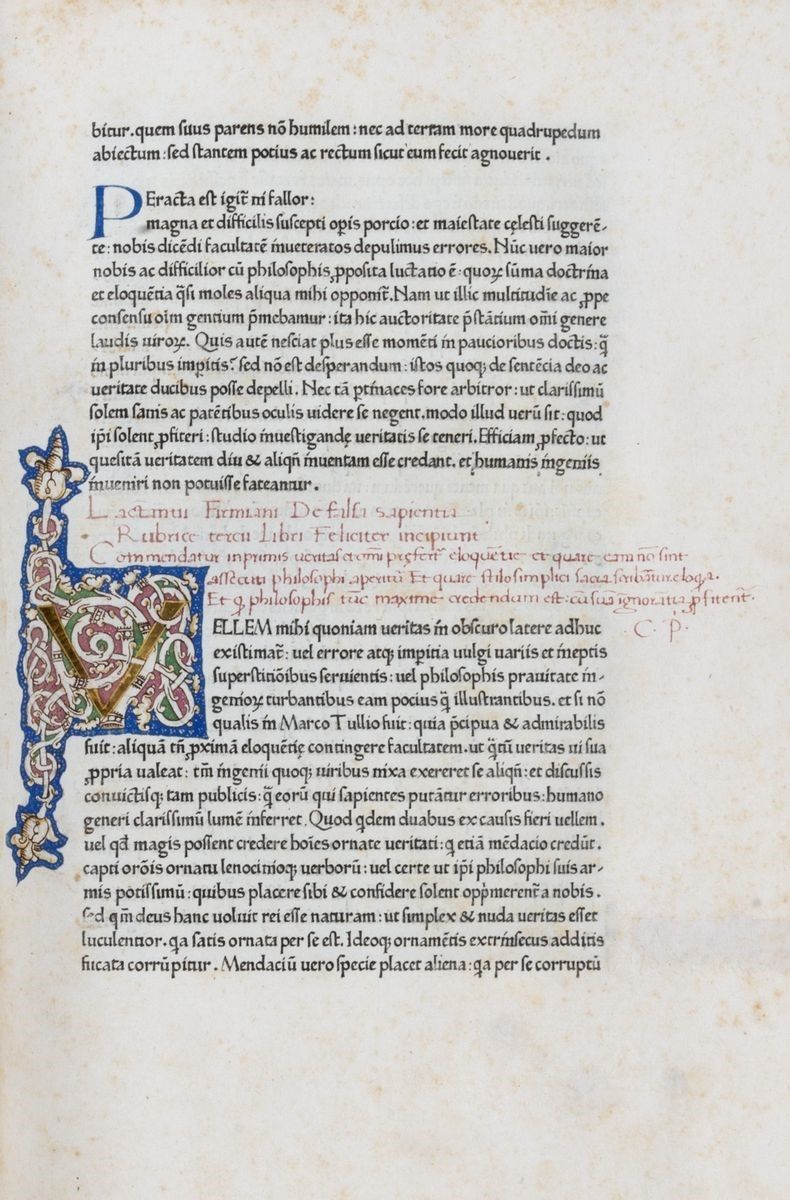 bitur. quem suus parens nō humilem: nec ad terram more quadrupedum
abiectum: sed stantem potius ac rectum sicut eum fecit agnouerit.
PEracta est igit̄ ni fallor:
magna et difficilis suscepti opis porcio: et maiestate cęlesti suggerē-
te: nobis dicēdi facultatē inueteratos depulimus errores. Nūc uero maior
nobis ac difficilior cū philosophis ꝓposita luctatio ē: quoꝝ sūma doctrina
et eloquētia q̄si moles aliqua mihi opponit̄. Nam ut illic multitudīe ac ꝓpe
consensu oīm gentium p̄mebamur: ita hic auctoritate p̄stātium omī genere
laudis uiroꝝ. Quis autē nesciat plus esse momēti in paucioribus doctis: q̄
in pluribus impitis? sed nō est desperandum: istos quoq; de sentēcia deo ac
ueritate ducibus posse depelli. Nec tā ptinaces fore arbitror: ut clarissimū
solem sanis ac patētibus oculis uidere se negent. modo illud uerū sit: quod
ip̄i solent ꝓfiteri: studio inuestigandę ueritatis se teneri. Efficiam ꝓfecto: ut
quesitā ueritatem diu & aliqn̄ inuentam esse credant. et humanis ingeniis
inueniri non potuisse fateantur.
Lactantii Firmiani De falsa sapientia
Rubrice tercii Libri Feliciter incipiunt
Commendatur inprimis ueritas et omī preferēt eloquētie et quare eam nō sint
assecuti philosophi aperitū Et quare stilo simplici sacra scribāntur eloqa.
Et q philosophis tūc maxime credendum est: cū suā ignoratiā ꝓfitent̄.
C. P.
VELLEM mihi quoniam ueritas in obscuro latere adhuc
existimat̄: uel errore atq; impitia uulgi uariis et ineptis
superstitiōibus seruientis: uel philosophis prauitate in-
genioꝝ turbantibus eam pocius q̄ illustrantibus. et si nō
qualis in Marco Tullio fuit: quia p̄cipua & admirabilis
fuit: aliquā tn̄ ꝓximā eloquētię contingere facultatem. ut q̄tū ueritas ui sua
ꝓpria ualeat: tm̄ ingenii quoq; uiribus nixa exereret se aliqn̄: et discussis
conuictisq; tam publicis: q̄ eorū qui sapientes putātur erroribus: humano
generi clarissimū lumē inferret. Quod qdem duabus ex causis fieri uellem.
uel qd̄ magis possent credere hoīes ornate ueritati: q etiā mēdacio credūt.
capti orōis ornatu lenocinioq; uerborū: uel certe ut ip̄i philosophi suis ar-
mis potissimū: quibus placere sibi & confidere solent opp̄merent̄ a nobis.
Sed qm̄ deus hanc uoluit rei esse naturam: ut simplex & nuda ueritas esset
luculentior. qa satis ornata per se est. Ideoq; ornamētis extrinsecus additis
fucata corrūpitur. Mendaciū uero specie placet aliena: qa per se corruptū